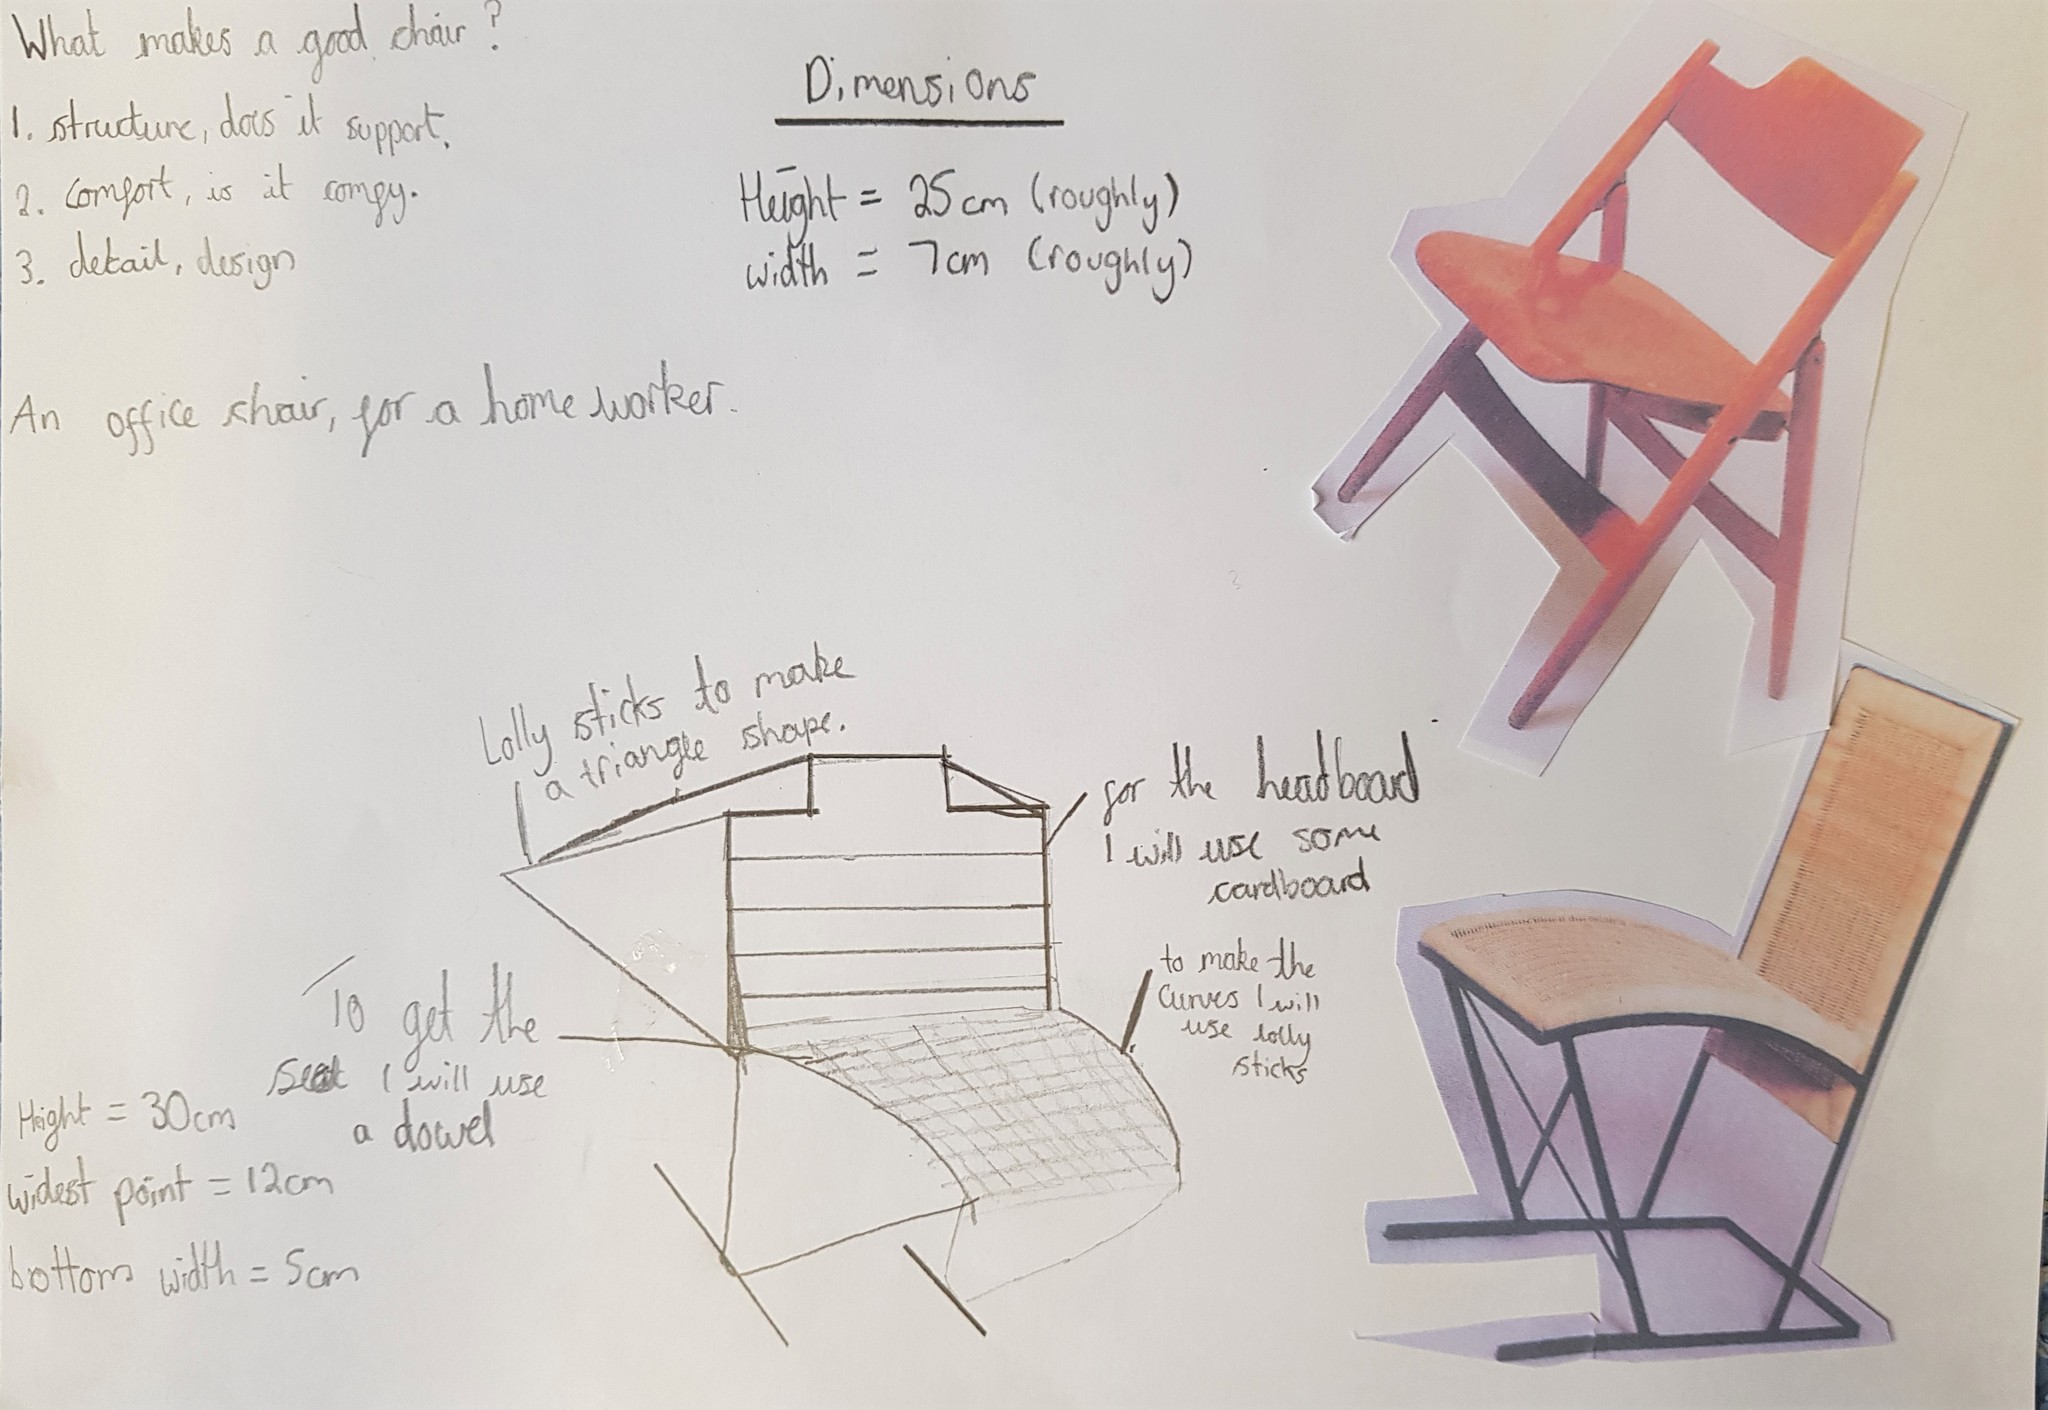 What makes a good chair?
1. structure, does it support.
2. comfort, is it comfy.
3. detail, design
Dimensions
Height = 25cm (roughly)
width = 7cm (roughly)
An office chair, for a home worker.
Lolly sticks to make
a triangle shape.
for the headboard
I will use some
cardboard
to make the
curves I will
use lolly
sticks
To get the
seat I will use
a dowel
Height = 30cm
widest point = 12cm
bottom width = 5cm